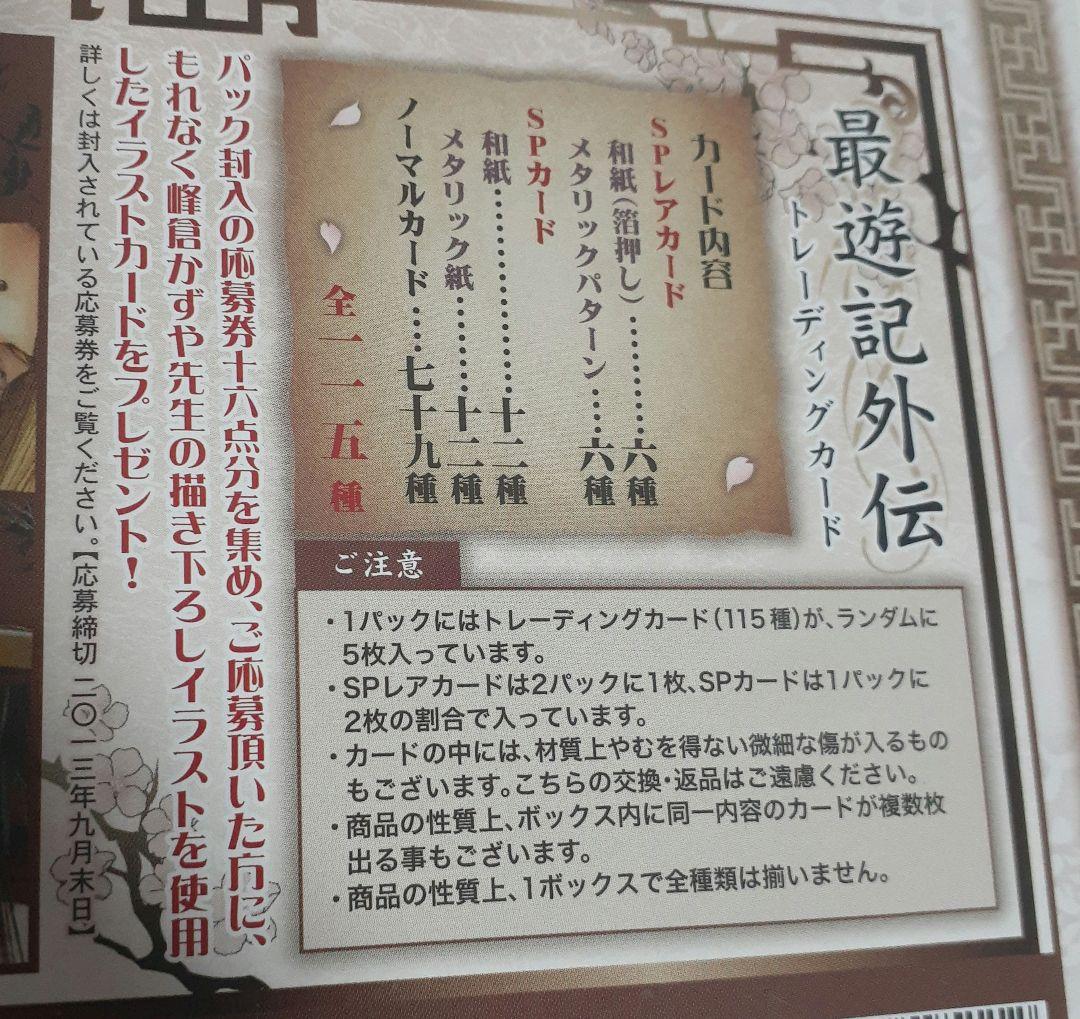 最遊記外伝
トレーディングカード
カード内容
SPレアカード
和紙(箔押し)…………六種
メタリックパターン……六種
SPカード
和紙…………………十二種
メタリック紙…………十二種
ノーマルカード……七十九種
全一一五種
ご注意
・1パックにはトレーディングカード(115種)が、ランダムに
5枚入っています。
・SPレアカードは2パックに1枚、SPカードは1パックに
2枚の割合で入っています。
・カードの中には、材質上やむを得ない微細な傷が入るもの
もございます。こちらの交換・返品はご遠慮ください。
・商品の性質上、ボックス内に同一内容のカードが複数枚
出る事もございます。
・商品の性質上、1ボックスで全種類は揃いません。
パック封入の応募券十六点分を集め、ご応募頂いた方に、
もれなく峰倉かずや先生の描き下ろしイラストを使用
したイラストカードをプレゼント!
詳しくは封入されている応募券をご覧ください。【応募締切 二〇一三年九月末日】